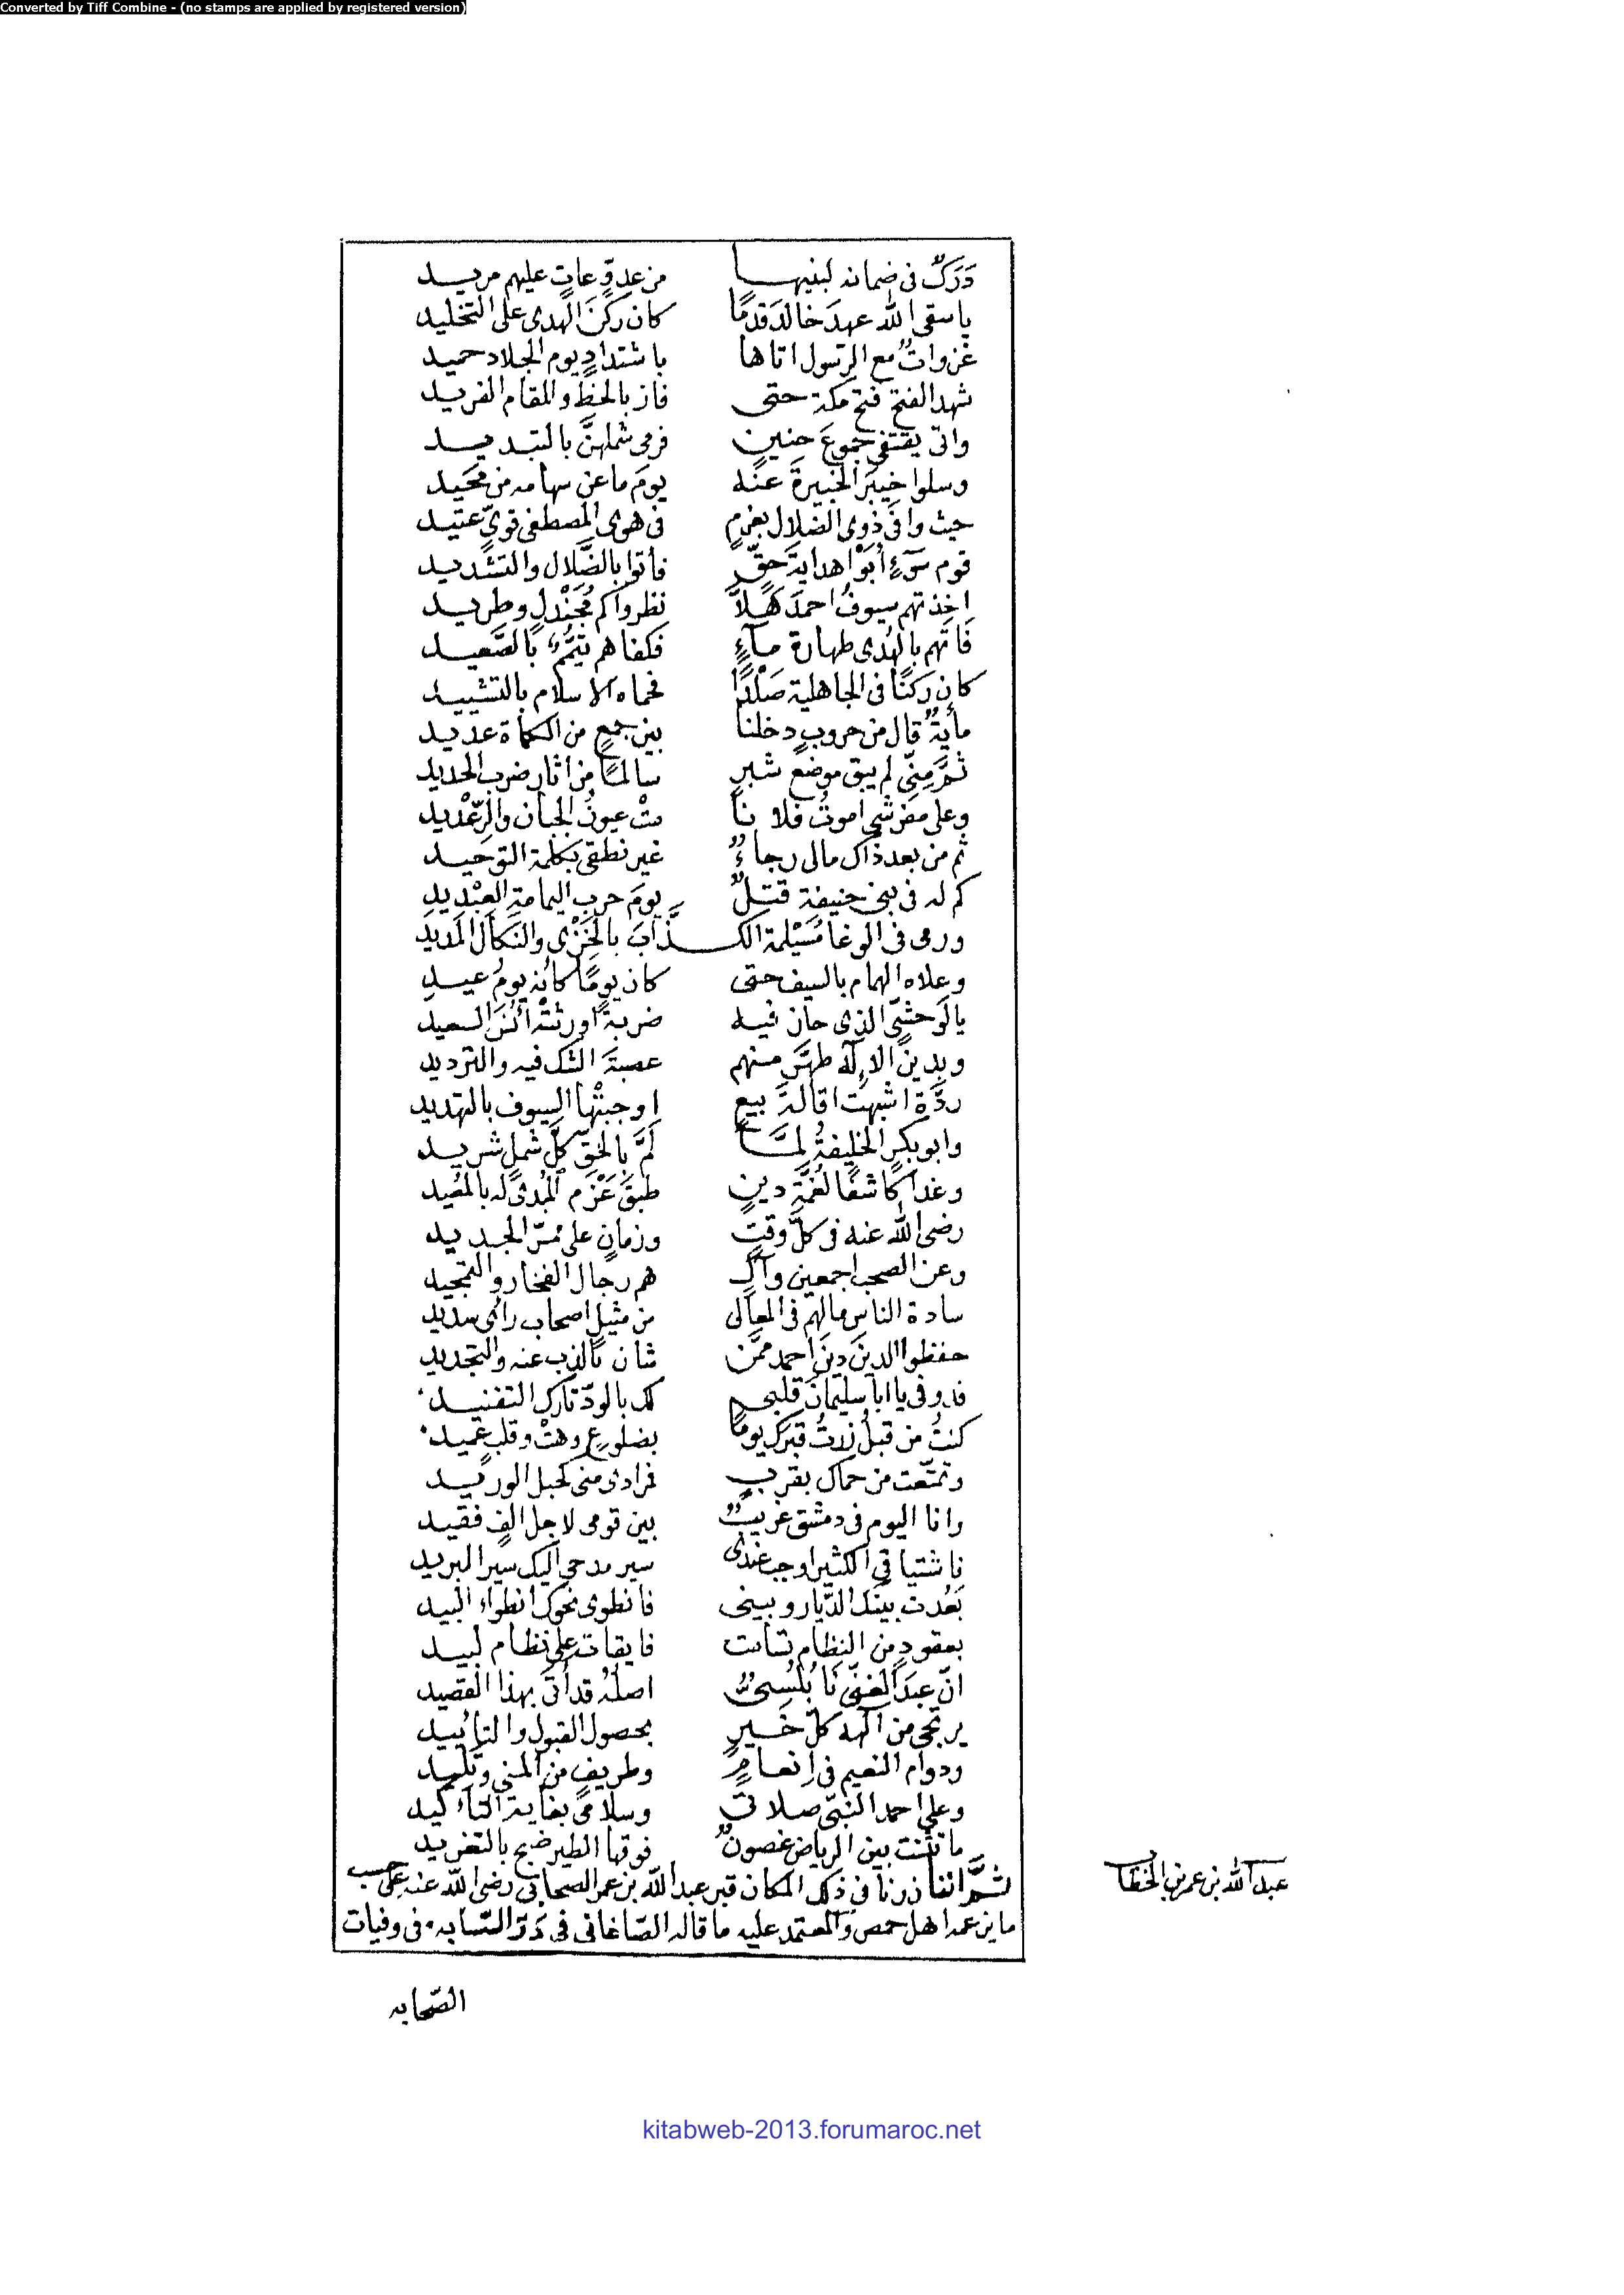 Converted by Tiff Combine - (no stamps are applied by registered version)
دَرَكٌ فى ضمانه لبنيها من عدوٍّ عاتٍ عليهم مريد
يا سقى الله عهدَ خالدَ قدمًا كان ركنَ الهدى على التخليد
غزواتٌ مع الرسول اتاها باشتدادٍ يوم الجلاد حميد
شهد الفتح فتح مكة حتى فاز بالحظِّ والمقام الفريد
واتى يقتفى جموعَ حنينٍ فرمى شملهنَّ بالتبديد
وسلوا خيبرَ الخبيرةَ عنه يومَ ما عن سهامه من محيد
حيث وافى ذوى الضلال بعزمٍ فى هوى المصطفى قوىٍّ عتيد
قوم سَوءٍ أبَوْا هدايةَ حقٍّ فأتوا بالضَّلال والتشديد
اخذتهم سيوفُ احمدَ كهلاً نظروا كم مُجَنْدلٍ وطريد
فاتهم بالهُدى طهارة ماءٍ فكفاهم تيمُّمٌ بالصَّعيد
كان ركنًا فى الجاهلية صَلْدًا فحماه الاسلام بالتشييد
مأيةٌ قال من حروبٍ دخلنا بين جمعٍ من الكماة عديد
ثمَّ مِنِّى لم يبق موضعُ شبرٍ سالمًا من اثار ضرب الحديد
وعلى مفرشى اموتُ فلا نا متْ عيونُ الجبان والرِّعْديد
ثم من بعد ذاك مالى رجاءٌ غير نطقى بكلمة التوحيد
كم له فى بنى حنيفة قتلٌ يومَ حرب اليمامة
ورمى فى الوغا مُسَيْلمة الكذَّابَ بالخزْى والنكال المديد
وعلاه الهمام بالسيف حتى كان يومًا كأنه يومُ عيد
يالَوحشىِّ الذى حان فيه ضربةً اورثتْه أنسَ السعيد
وبدين الاله طهَّر منهم عصبةَ الشك فيه والترديد
ردَّة اشبهت اقالةَ بيعٍ اوجبتْها السيوف بالتهديد
وابو بكرٍ الخليفةُ لمَّا لَمَّ بالحقِّ كلَّ شملٍ شريد
وغدا كاشفًا لغُمَّة دينٍ طبقَ عَزْم
رضى الله عنه فى كلِّ وقتٍ وزمانٍ على ممرِّ الجديد
وعن الصحب اجمعين وآلٍ هم رجال الفخار والتمجيد
سادة الناس ما لهم فى المعالى من مثيلٍ اصحاب رأى سديد
حفظوا الدين دينَ احمد ممَّن شان بالذب عنه والتجديد
يا ابا سليمانَ قلبى لك بالودّ تارك التفنيد
كنتُ من قبلُ زرتُ قبرك يومًا بضلوعٍ وهتْ وقلبٍ عميد
وتمتَّعت من حماك بقربٍ فمرادى منى كحبل الوريد
وانا اليوم فى دمشق غريبٌ بين قومى لاجل الفٍ فقيد
فاشتياقى الكثير اوجب عندى سير مدحى اليك سيرَ البريد
بَعُدت بينك الدّيار وبينى فانطوى نحوك انطواء البيد
بعقودٍ من النظام تسامت فايقات على نظام لبيد
انّ عبدَ الغنىّ نابُلُسىٌّ اصلُه قد أتى بهذا القصيد
يرتجى من الهه كلَّ خيرٍ بحصول القبول والتأييد
ودوام النعيم فى إنعامٍ وطريفٍ من المنى وتليد
وعلى احمد النبىّ صلاتى وسلامى بغاية التأكيد
ما تثنت بين الرياض غصونٌ فوقها الطير ضج بالتغريد
ثمَّ اننا زرنا فى ذلك المكان قبر عبد الله بن عمر الصحابى رضى الله عنه على حسب
عبد الله بن عمر بن الخطاب
ما يزعم اهل حمص والمعتمد عليه ما قاله الصّاغانى فى درّ السّحابه فى وفيات
الصّحابه
kitabweb-2013.forumaroc.net